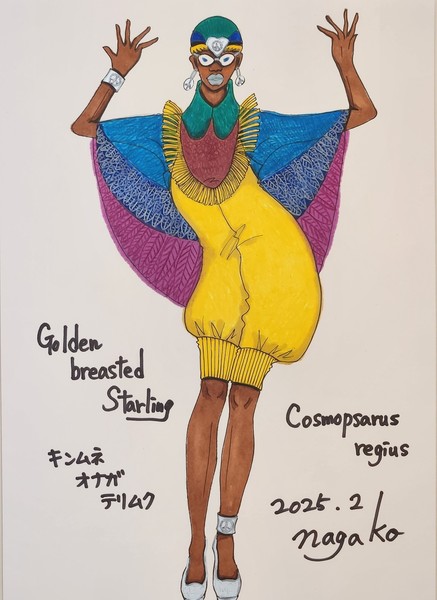 Golden
breasted
Starling
キンムネ
オナガ
テリムク
Cosmopsarus
regius
2025.2
nagako